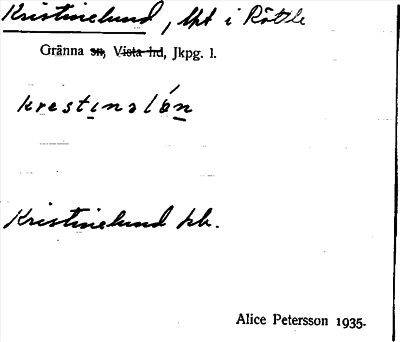 Kristinelund, lht i Röttle
Gränna sn, Vista hd, Jkpg. l.
krestinaló̱n
Kristinelund kb.
Alice Petersson 1935.